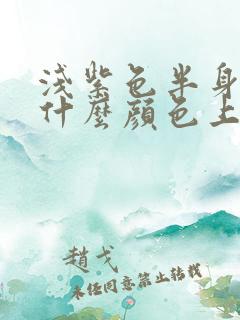 淺紫色半身
什麼顏色上
趙戈
未經同意禁止轉載